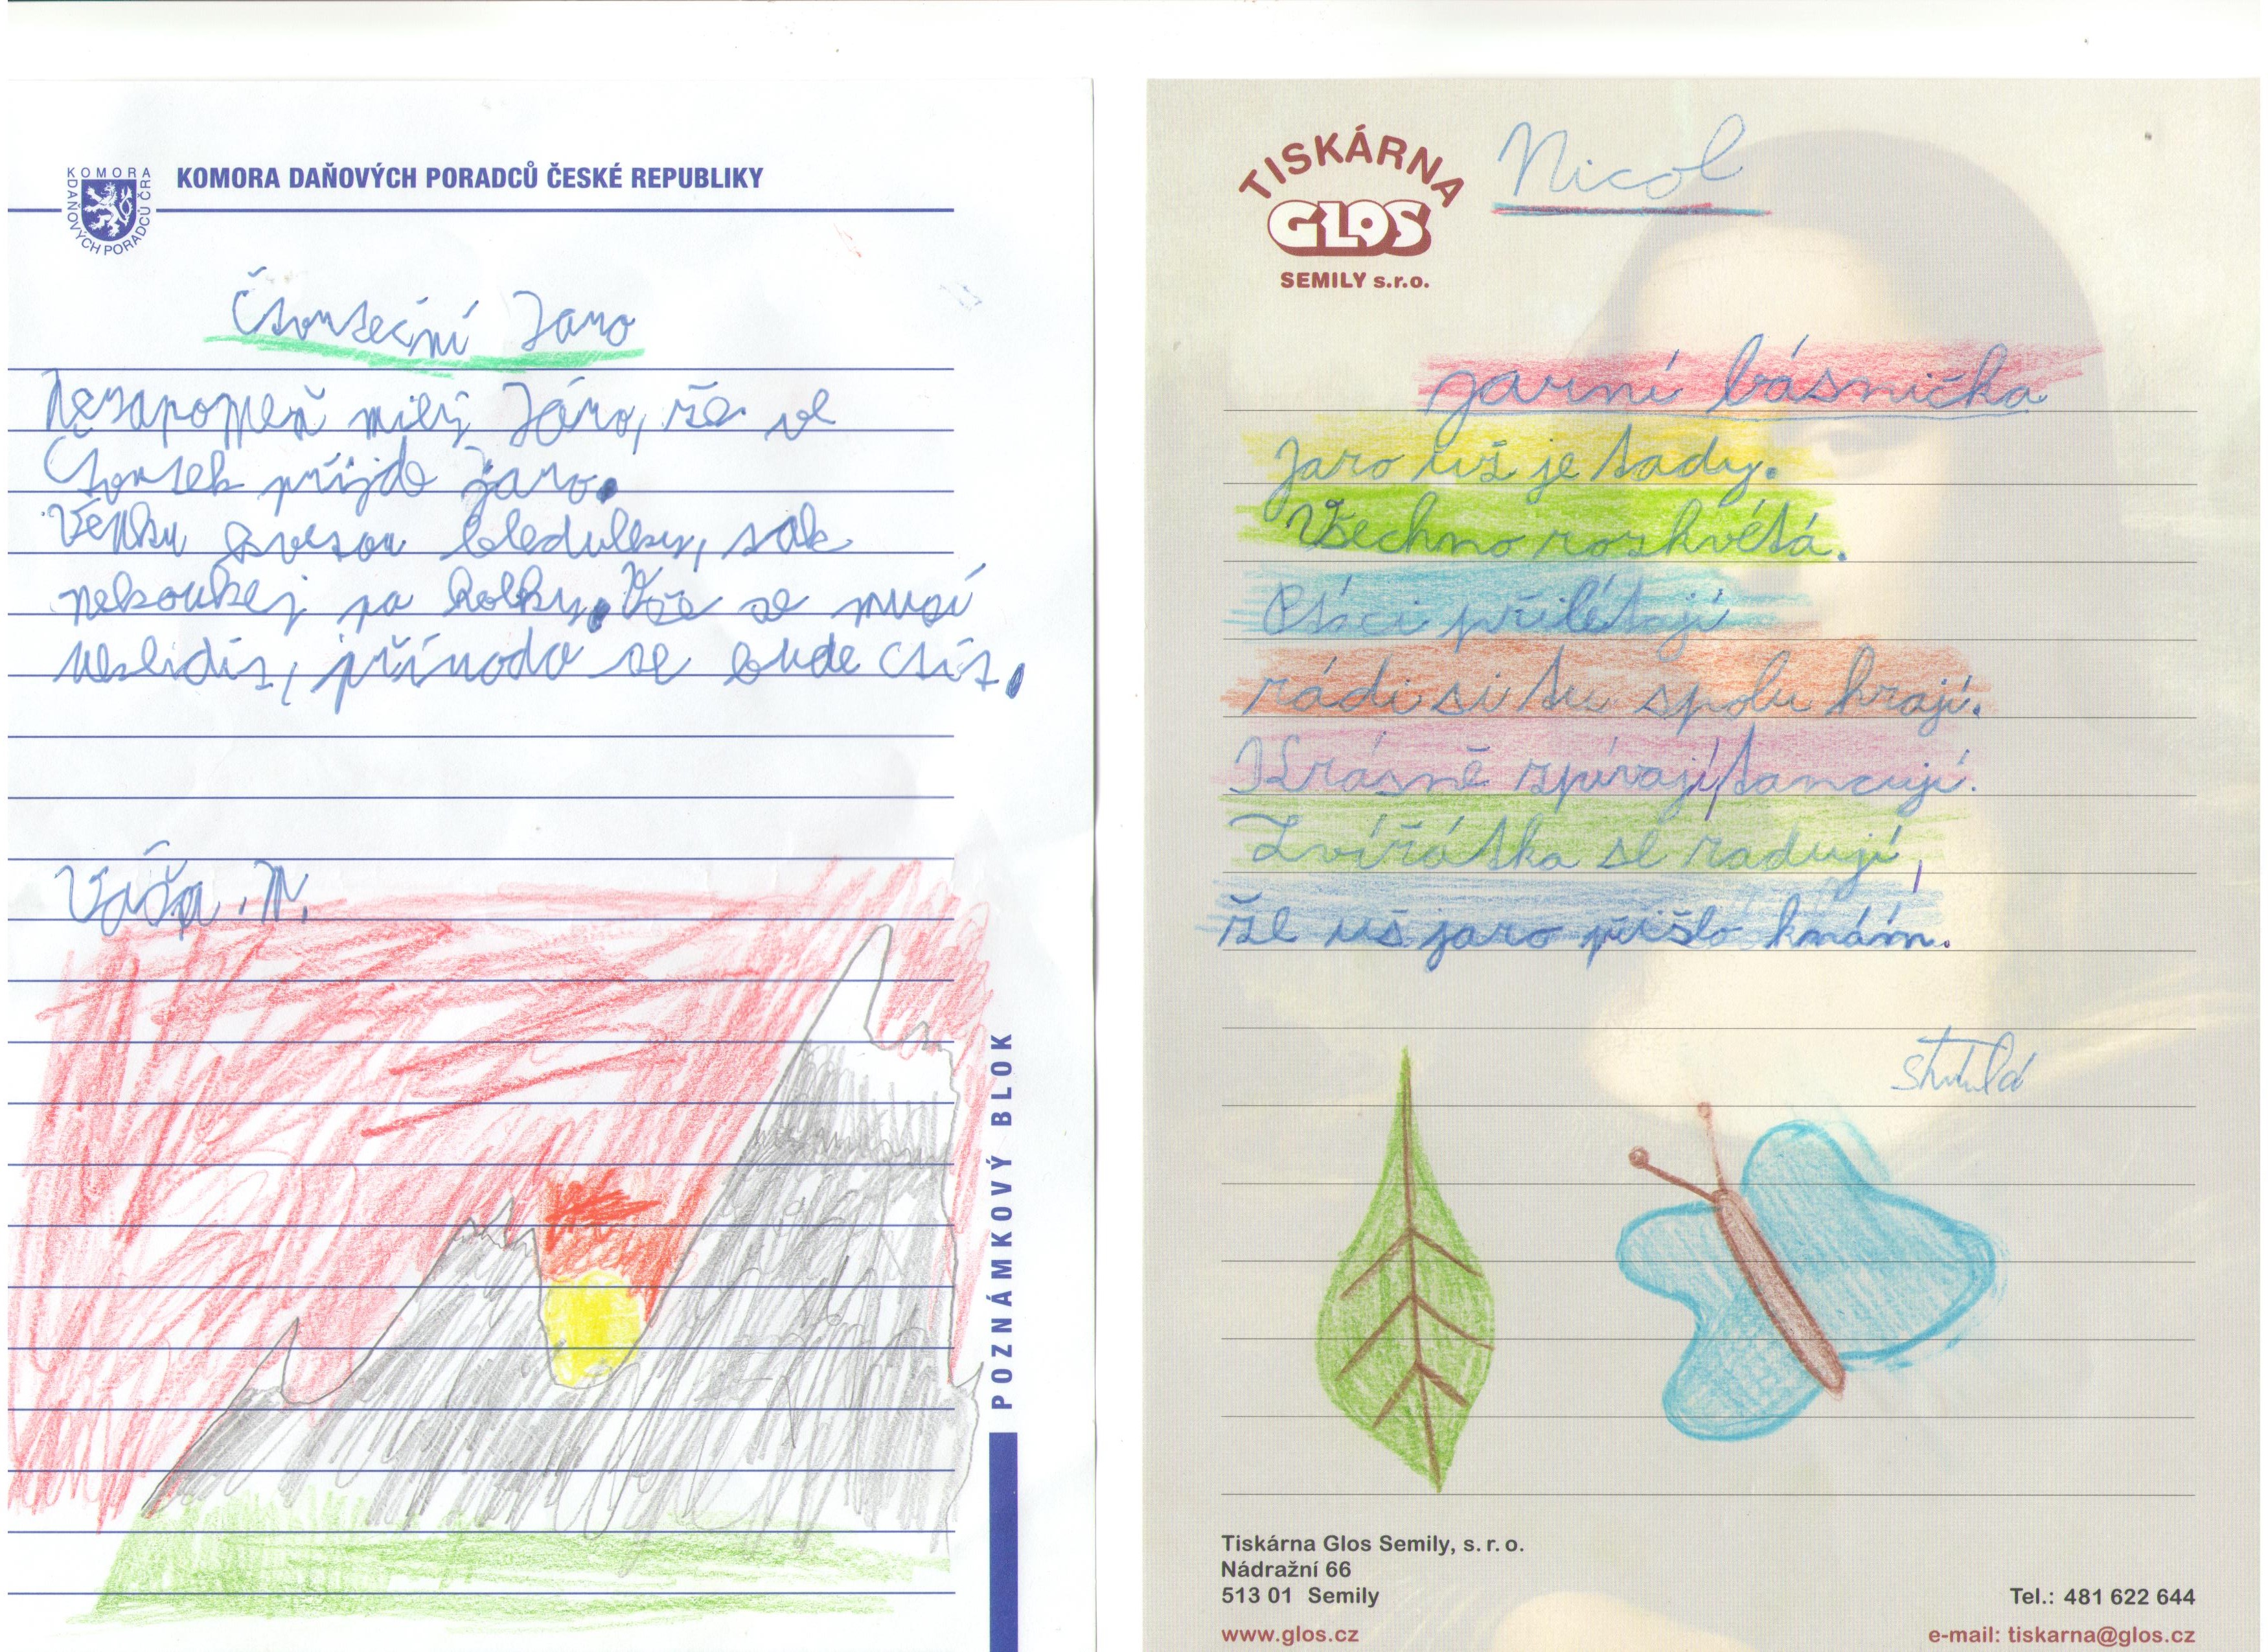 KOMORA DAŇOVÝCH PORADCŮ ČR
KOMORA DAŇOVÝCH PORADCŮ ČESKÉ REPUBLIKY
Čtvrteční Jaro
Nezapomeň milý Járo, že ve
čtvrtek příjde jaro.
Venku kvetou bledulky, tak
nekoukej na holky. Vše se musí
uklidit, příroda se bude ctít.
Váša. N.
POZNÁMKOVÝ BLOK
TISKÁRNA
GLOS
SEMILY s.r.o.
Nicol
jarní básnička
Jaro už je tady.
Všechno rozkvétá.
Ptáci přilétají
rádi si tu spolu hrají.
Krásně zpívají, tancují.
Zvířátka se radují,
že už jaro přišlo knám.
Tiskárna Glos Semily, s. r. o.
Nádražní 66
513 01 Semily
www.glos.cz
Tel.: 481 622 644
e-mail: tiskarna@glos.cz